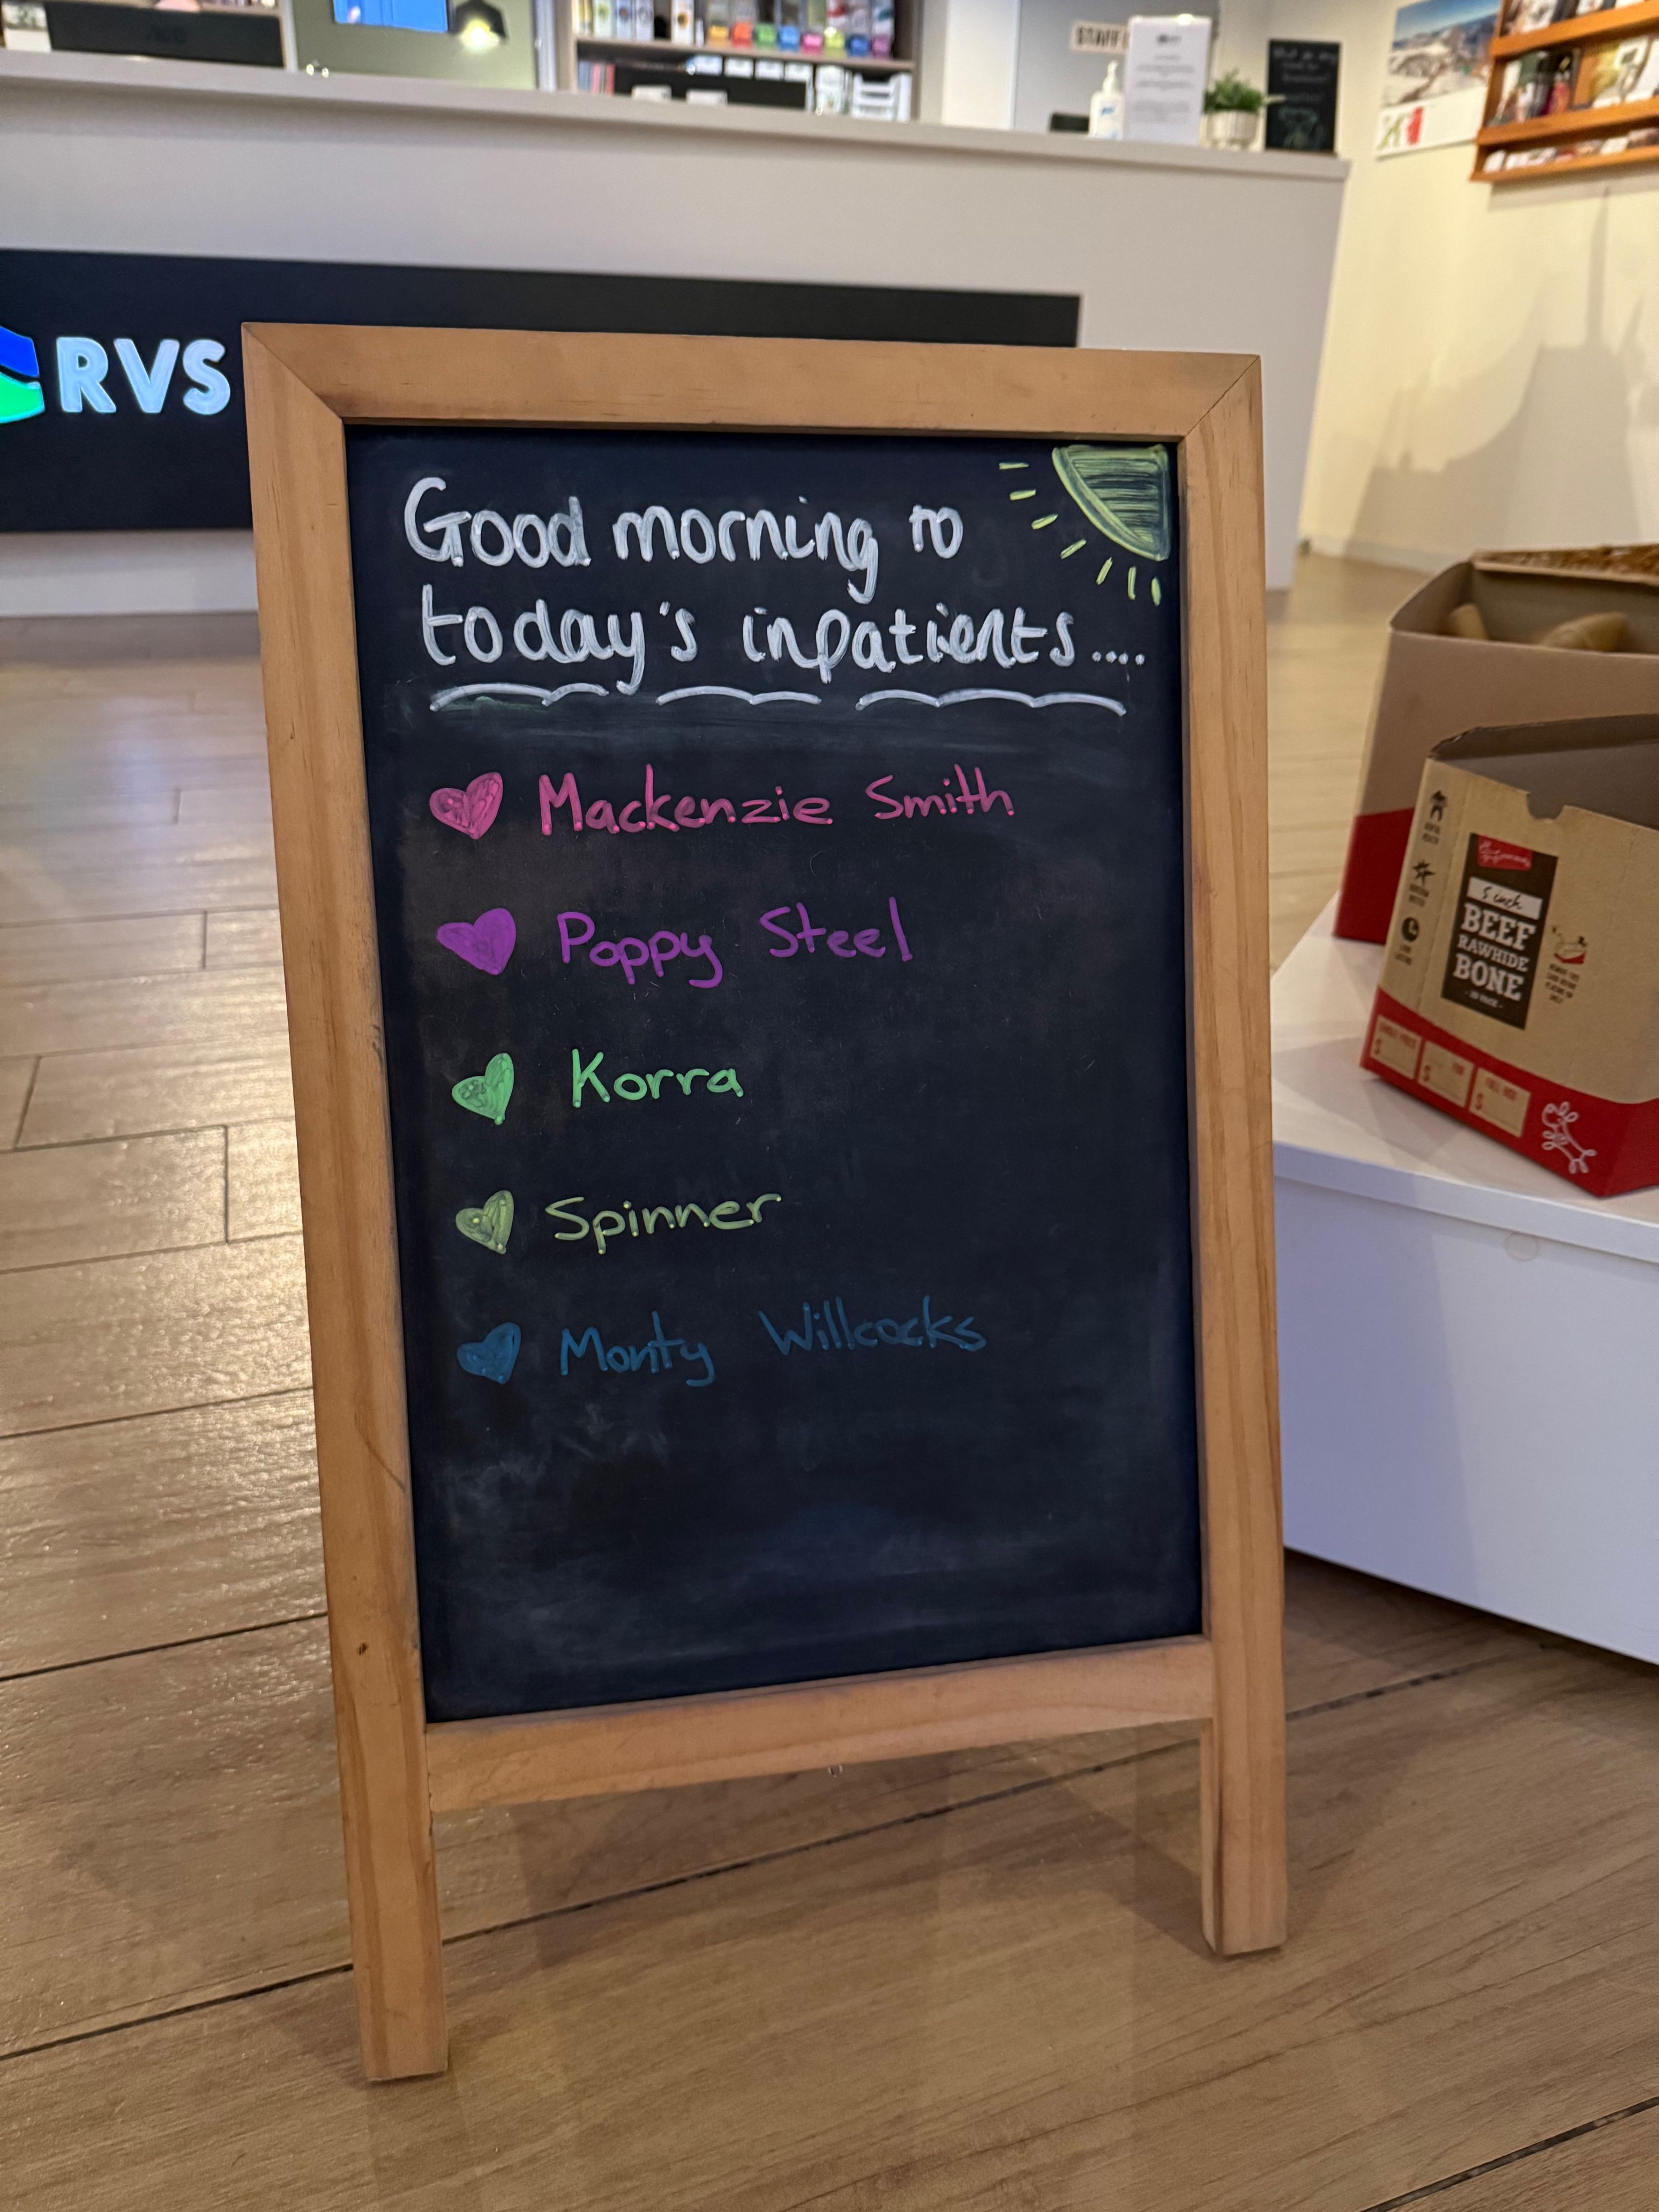 STAFF
RVS
Good morning to
today's inpatients....
Mackenzie Smith
Poppy Steel
Korra
Spinner
Monty Willcocks
5 inch
BEEF
RAWHIDE
BONE